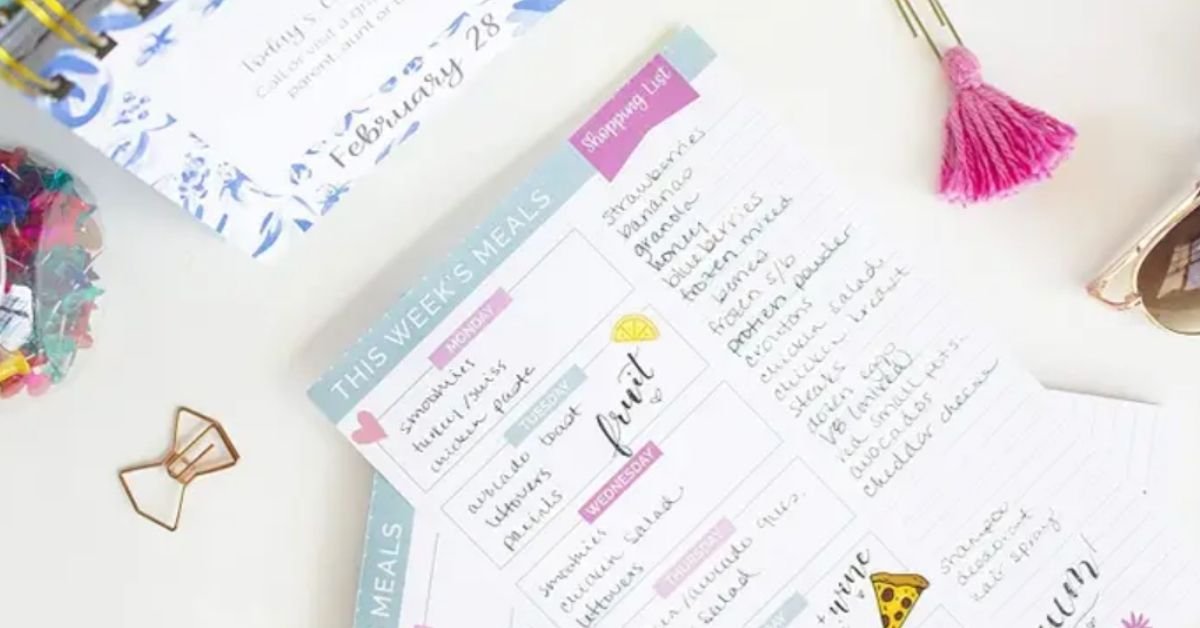 Today's C
Call or visit a gr
parent, aunt or u
February 28
THIS WEEK'S MEALS
Shopping List
strawberries
bananas
granola
honey
blueberries
frozen mixed
berries
frozen s/b
protien powder
croutons
chicken salad
chicken breast
steaks
dozen eggs
V8 (mixed)
red small pots.
avocados
cheddar cheese
shampoo
deodorant
cat spray
MONDAY
smoothies
turkey/swiss
chicken paste
TUESDAY
avocado toast
leftovers
fruit
WEDNESDAY
smoothies
chicken salad
leftovers
THURSDAY
/avocado ques.
salad
DAY
wine
MEALS